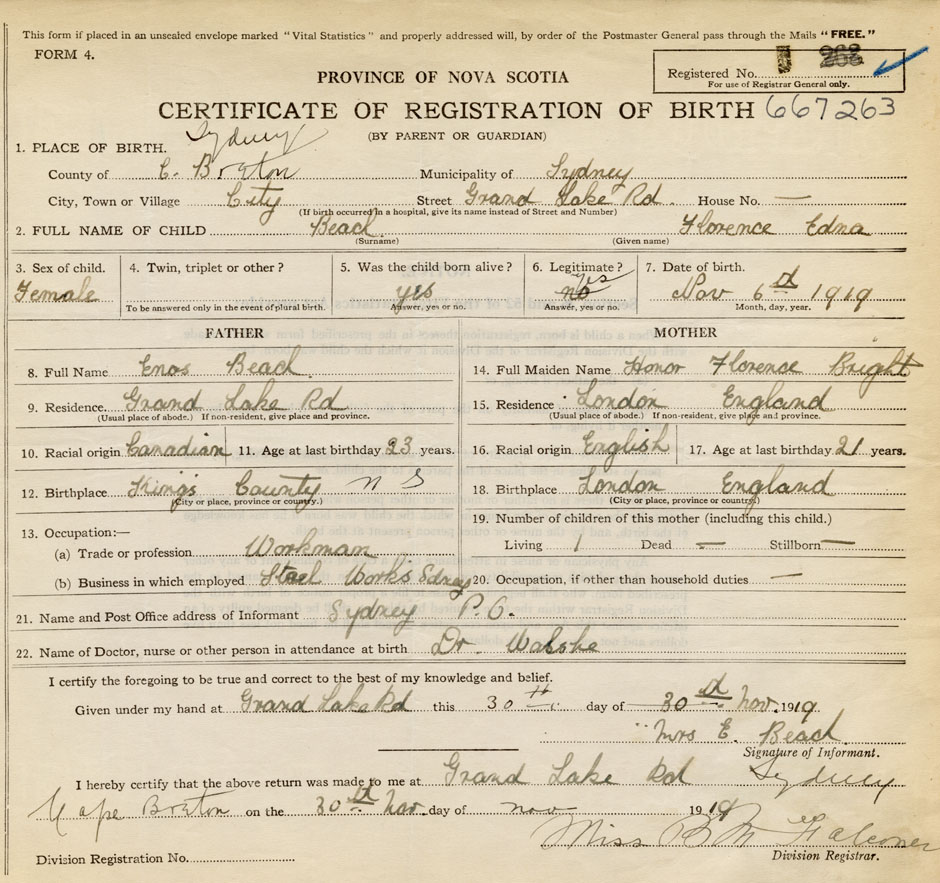 This form if placed in an unsealed envelope marked "Vital Statistics" and properly addressed will, by order of the Postmaster General pass through the Mails "FREE."
FORM 4.
Registered No. 262
For use of Registrar General only.
PROVINCE OF NOVA SCOTIA
CERTIFICATE OF REGISTRATION OF BIRTH 667263
(BY PARENT OR GUARDIAN)
Sydney
1. PLACE OF BIRTH.
County of C. Breton Municipality of Sydney
City, Town or Village City Street Grand Lake Rd. House No. —
(If birth occurred in a hospital, give its name instead of Street and Number)
2. FULL NAME OF CHILD Beach Florence Edna
(Surname) (Given name)
3. Sex of child. 4. Twin, triplet or other? 5. Was the child born alive? 6. Legitimate? 7. Date of birth.
yes
Female yes no Nov 6th 1919
To be answered only in the event of plural birth. Answer, yes or no. Answer, yes or no. Month, day, year.
FATHER MOTHER
8. Full Name Enos Beach 14. Full Maiden Name Honor Florence Bright
9. Residence. Grand Lake Rd 15. Residence London England
(Usual place of abode.) If non-resident, give place and province. (Usual place of abode.) If non-resident, give place and province.
10. Racial origin Canadian 11. Age at last birthday 23 years. 16. Racial origin English 17. Age at last birthday 21 years.
12. Birthplace Kings County N S 18. Birthplace London England
(City or place, province or country.) (City or place, province or country)
13. Occupation:— 19. Number of children of this mother (including this child.)
(a) Trade or profession Workman Living 1 Dead — Stillborn —
(b) Business in which employed Steel Works Sdney 20. Occupation, if other than household duties —
21. Name and Post Office address of Informant Sydney P.O.
22. Name of Doctor, nurse or other person in attendance at birth Dr. Walshe
I certify the foregoing to be true and correct to the best of my knowledge and belief.
Given under my hand at Grand Lake Rd this 30th day of 30th Nov. 1919
Mrs E. Beach
Signature of Informant.
I hereby certify that the above return was made to me at Grand Lake Rd Sydney
Cape Breton on the 30th Nov day of nov 1919
Miss B M Falconer
Division Registration No. Division Registrar.